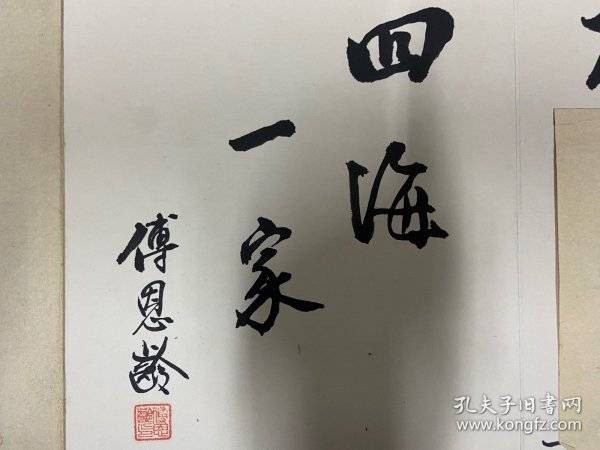 四海
一家
傅恩龄
孔夫子旧书网
www.kongfz.com